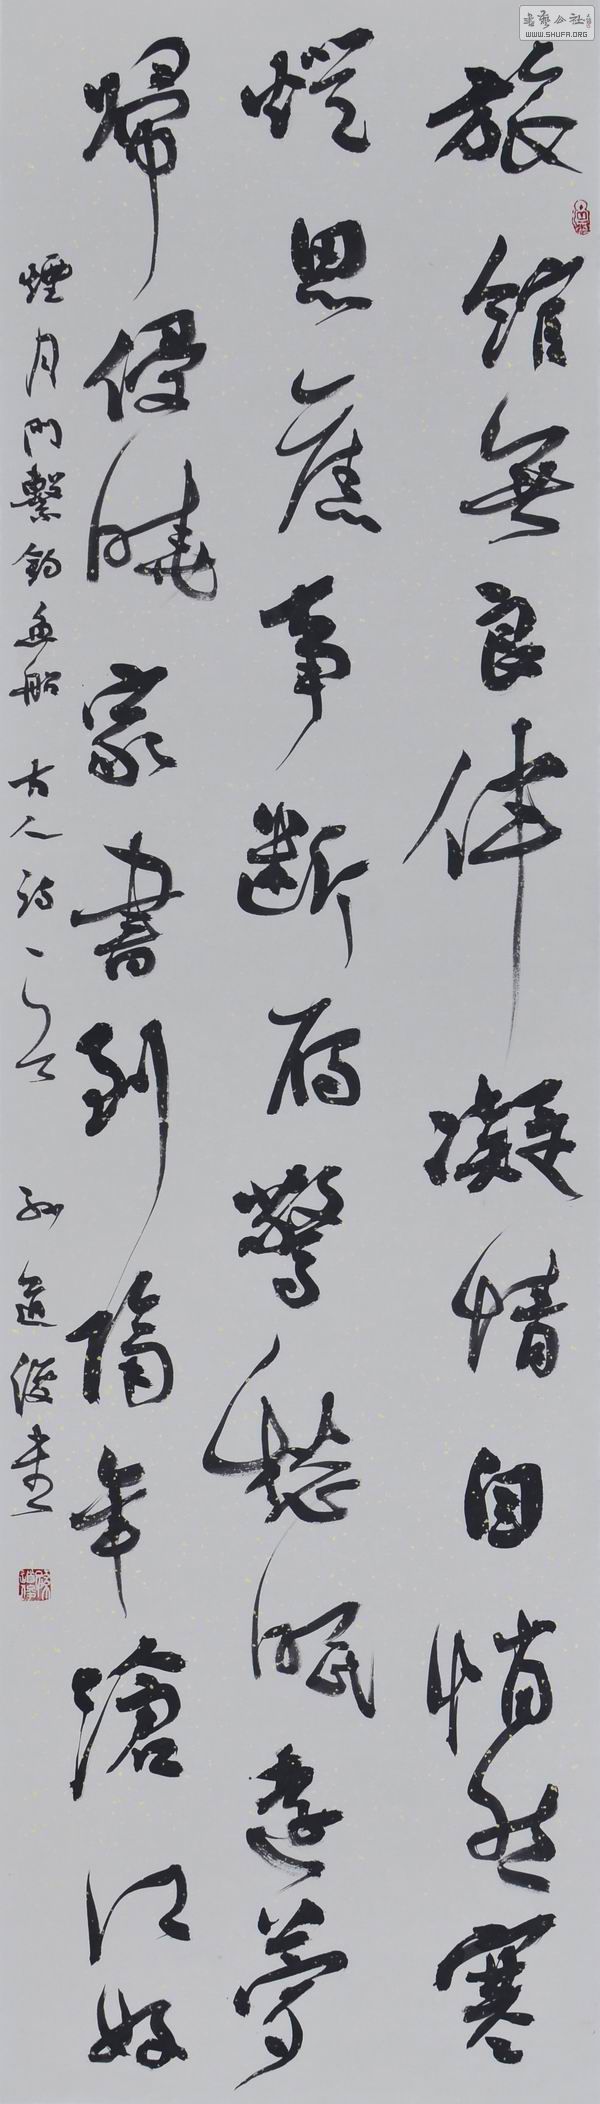 旅館無良伴凝情自悄然寒
燈思舊事斷雁驚愁眠遠夢
歸侵曉家書到隔年滄江好
煙月門繫釣魚船 古人詩一首 孫道俊書
書藝公社
WWW.SHUFA.ORG